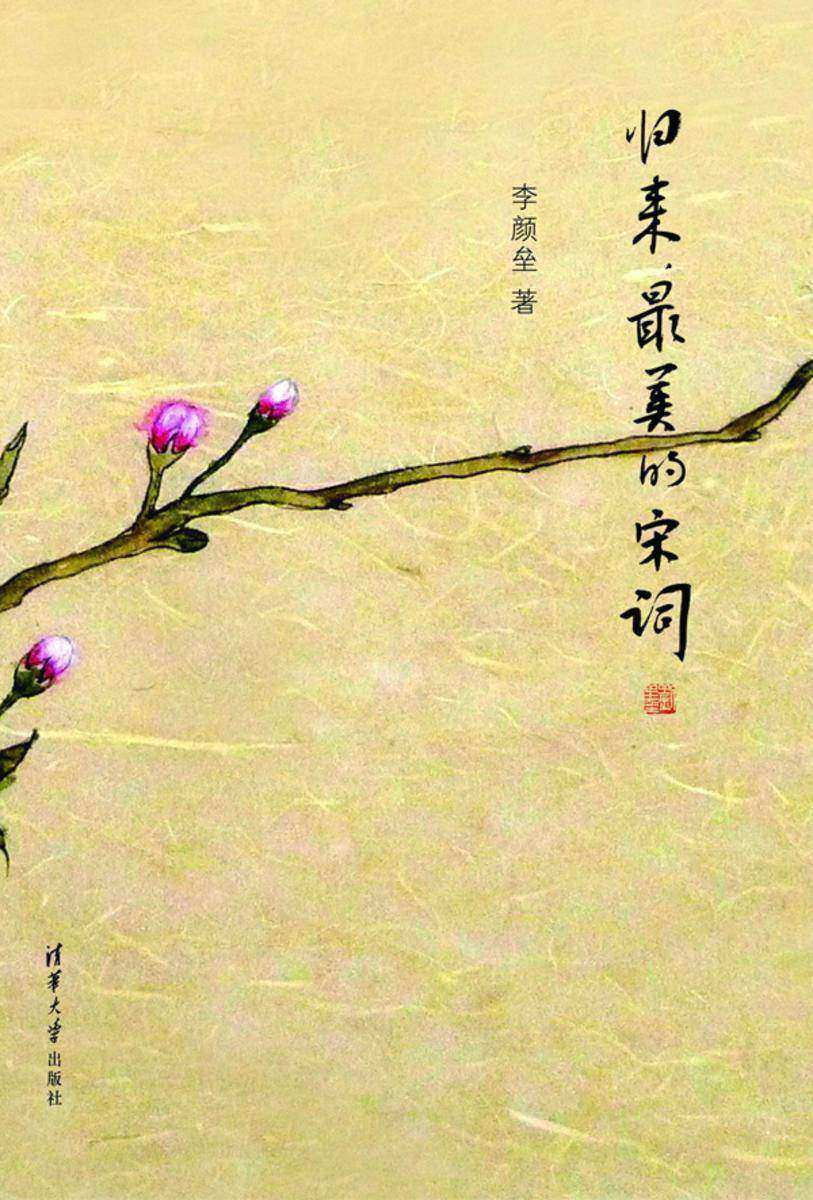 归来，最美的宋词
李颜垒 著
清华大学出版社